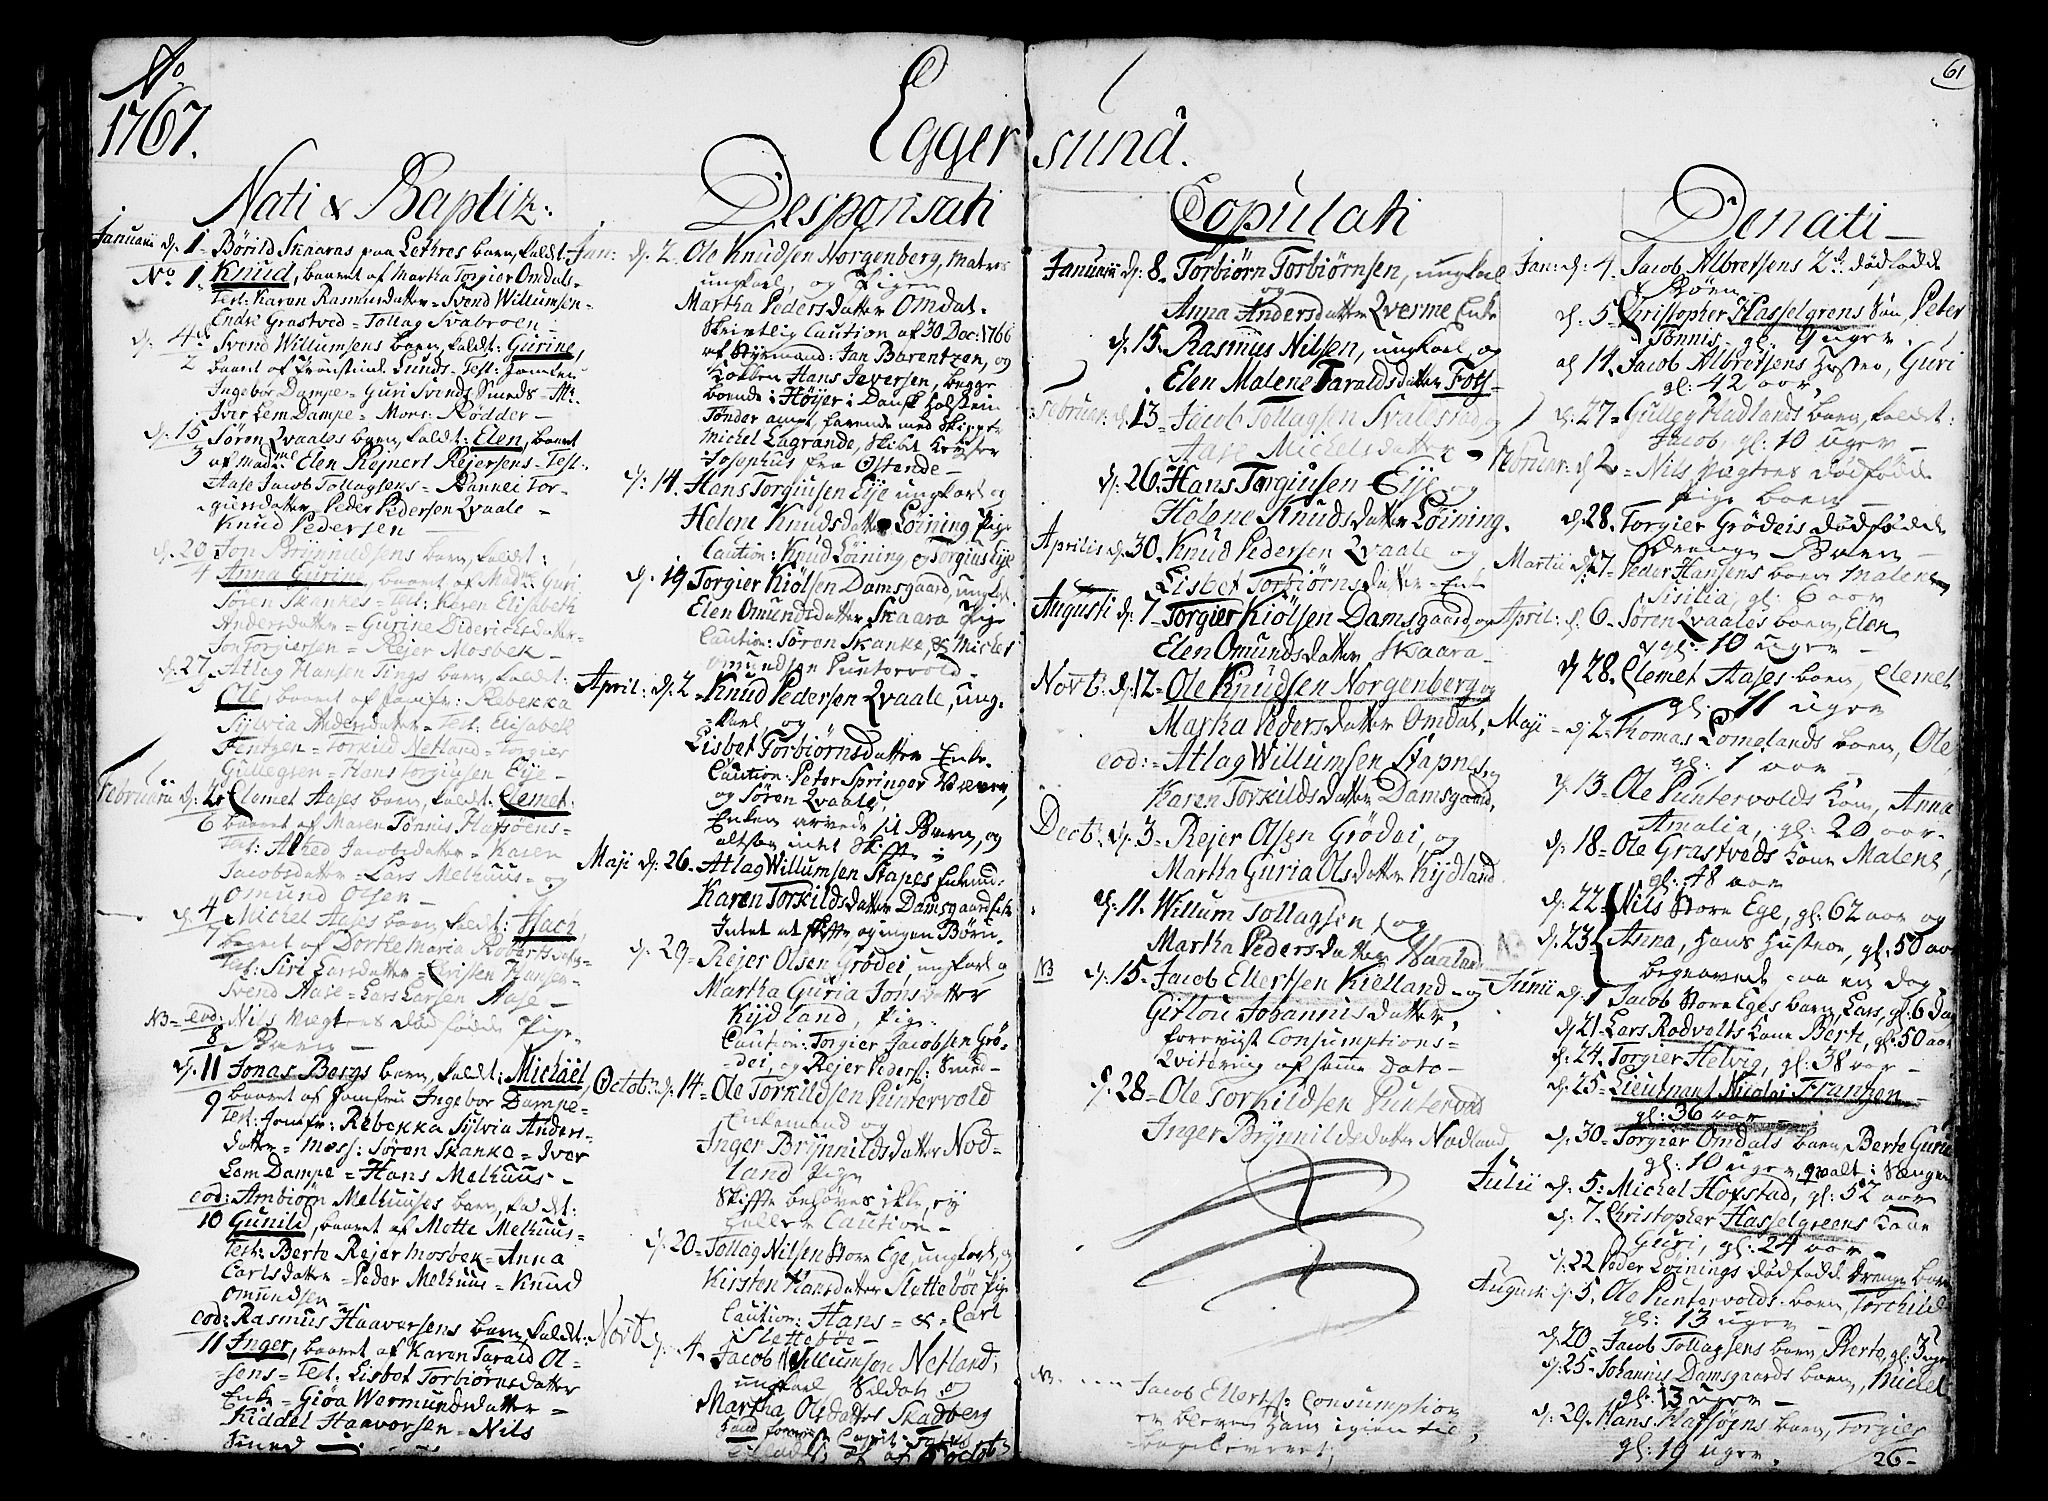 Ao
1767.
Egger
sund.
61
Nati & Baptiz:
Januarii d. 1 - Börild Skaaras paa Lethres barn, kaldt
No 1. Knud, baaret af Martha Torgier Omdals-
Test: Karen Rasmusdatter = Svend Willumsen =
Endre Grastved = Tollag Svabroen -
d. 4 Svend Willumsens barn, kaldt: Gurine,
2 baaret af Lunds = Test:
Ingebor Dampe = Guri Svends Smeds =
Iver Lem Dampe = Mons: Rödder -
d. 15 Sören Qvaales barn, kaldt: Elen, baaret
3 af Madme Elen Rejnert Rejersens = Test:
Aase Jacob Tollagsens = Rannei Tor-
giersdatter = Peder Pedersen Qvaale =
Knud Pedersen -
d. 20 Jon Brynnildsens barn, kaldt:
4 Anna Gurine, baaret af Madme Guri
Sören Skankes = Test: Karen Elisabeth
Andersdatter = Gurine Diderichsdatter =
Jon Torgiersen = Rejer Mosbek -
d. 27 Atlag Hansen Tings barn, kaldt:
5 Ole, baaret af Jomfr: Rebekka
Sylvia Andersdatter = Test: Elisabeth
Fentzen = Torkild Netland = Torgier
Gullegsen = Hans Torgiusen Eije -
Februarii d. 2 Clemet Aases barn, kaldt: Clemet
6 baaret af Maren Tönnis Hafsöens =
Test: Jacobsdatter = Karen
Jacobsdatter = Lars Melhuus = og
Omund Olsen -
d. 4 Michel Aases barn, kaldt: Isach,
7 baaret af Dorthe Maria
Test: Siri Larsdatter = Christen Hansen =
Svend Aase = Lars Larsen Aase -
NB = eod: Nils Mægtres dödfödde Pige-
8 Barn -
d. 11 Jonas Bergs barn, kaldt: Michäel,
baaret af Jomfru Ingebor Dampe =
9 Test: Jomfr: Rebekka Sylvia Anders-
datter = Mess: Sören Skanke = Iver
Lem Dampe = Hans Melhuus -
eod: Ambiörn Melhuuses barn, kaldt:
10 Gunild, baaret af Mette Melhuus =
Test: Berte Rejer Mosbek = Anna
Carlsdatter = Peder Melhuus = Knud
Omundsen
eod: Rasmus Haavorsens barn, kaldt:
11 Inger, baaret af Karen Tarald Ol-
sens = Test: Lisbet Torbiörnsdatter
Enke = Giöa Wermundsdatter =
Kiddel Haavorsen = Nils
Smed
Desponsati
Jan: d. 2. Ole Knudsen Norgenberg, Matros
ungkarl, og Pigen
Martha Pedersdatter Omdal.
Skrivtlig Caution af 30 Dec: 1766
af Styrmand: Jan Barentzen, og
Kokken Hans Iversen, begge
boende i Höyer i Dansk Holstein
Tönder amt, farende med Skipper
Michel Lagrande, Skibet Keyser
Josephus fra Ostende -
d. 14. Hans Torgiusen Eije ungkarl og
Helene Knudsdatter Löining Pige
Caution: Knud Löining, og Torgius Eije
d. 19 Torgier Kiölsen Damsgaard, ungkarl
Elen Omundsdatter Skaara Pige
Caution: Sören Skanke, & Michel
Omundsen Puntervold -
April: d. 2 - Knud Pedersen Qvaale, ung-
karl og
Lisbet Torbiörnsdatter Enke.
Caution: Peter Springer Væver,
og Sören Qvaale.
Enken arvede til Barn, og
altsaa intet Skifte
Maji d. 26. Atlag Willumsen Stapes Enkemd:
Karen Torkildsdatter Damsgaard Enke
Intet at skifte, og ingen Börn.
d. 29 - Rejer Olsen Grödei, ungkarl og
Martha Guria Jonsdatter
Kydland, Pige.
Caution: Torgier Jacobsen Grö-
dei, og Rejer Peders: Smed -
Octobr: d. 14 - Ole Torkildsen Puntervold
Enkemand og
Inger Brynnildsdatter Nod-
land Pige
Skifte behöves ikke, ey
heller Caution -
d. 20 - Tollag Nilsen Store Ege, ungkarl, og
Kirsten Hansdatter Sletteböe Pige
Caution: Hans = & = Carl
Sletteböe -
Novbr d. 4. Jacob Willumsen Netland,
ungkarl Soldat og
Martha Olsdatter Skadberg
Copulati
Januarii d. 8. Torbiörn Torbiörnsen, ungkarl
og
Anna Andersdatter Qverme Enke
d. 15. Rasmus Nilsen, ungkarl, og
Elen Malene Taraldsdatter Fotl-
Februar: d. 13 - Jacob Tollagsen Svalestad, og
Aase Michelsdatter -
d. 26. Hans Torgiusen Eije og
Helene Knudsdatter Löining.
Aprilis d. 30. Knud Pedersen Qvaale og
Lisbet Torbiörnsdatter Enke
Augusti d. 7 - Torgier Kiölsen Damsgaard, og
Elen Omundsdatter Skaara -
Novbr: d. 12 - Ole Knudsen Norgenberg og
Martha Pedersdatter Omdal.
eod: = Atlag Willumsen Stapnes, og
Karen Torkildsdatter Damsgaard,
Decbr: d. 3 - Rejer Olsen Grödei, og
Martha Guria Olsdatter Kydland.
d. 11. Willum Tollagsen, og
Martha Pedersdatter Haaland
NB d. 15 - Jacob Ellertsen Kielland - og
Gitlou Johannisdatter,
foreviist Consumptions =
Qvitering af samme Dato -
d. 28 - Ole Torkildsen Puntervold
Inger Brynnildsdatter Nodland
NB. Jacob Ellerts: Consumption
er bleven ham igien til-
bageleveret,
Denati -
Jan: d: 4. Jacob Albretsens 2de dödfödde
Börn -
d: 5 - Christopher Hasselgrens Sön, Peter
Tönnis - gl. 9 uger.
d 14. Jacob Albretsens Hustru, Guri
gl: 42 aar.
d: 27 - Gulleg Hadlands barn, kaldt:
Jacob, gl: 10 uger -
Februar: d. 2 - Nils Mægtres dödfödde
Pige barn -
d. 28. Torgier Grödeis dödfödde
drenge Barn -
Martii d. 27 - Peder Hansens barn Malene
Sisilia, gl: 6 aar
April: d. 6 - Sören Qvaales barn, Elen
gl: 10 uger -
d. 28. Clemet Aases barn, Clemet
gl. 11 uger
Maji - d. 2 - Thomas Lomelands barn, Ole,
gl: 1 aar
d. 13 - Ole Puntervolds Kone, Anna
Amalia, gl: 20 aar.
d. 18 - Ole Grastveds Kone Malene,
gl: 48 aar
d. 22 Nils Store Ege, gl: 62 aar og
d. 23 Anna, hans Hustrue, gl. 50 aar
begravede paa en dag
Junii d. 1 Jacob Store Eges barn, Lars, gl. 6 Dage
d. 21 - Lars Rodvelts Kone Berte, gl: 50 aar
d. 24. Torgier Helvig, gl: 38 aar -
d. 25 - Lieutnant Nicolai Frantzen -
gl: 36 aar
d. 30 - Torgier Omdals barn, Berte Guria
gl. 10 uger, qvalt i Sengen
Julii d. 5: Michel Hofstad, gl: 52 aar
d. 7. Christopher Hasselgreens Kone
Guri, gl: 24 aar -
d. 22 Peder Löinings dödfödde Drenge barn
Augusti d. 5. Ole Puntervolds barn, Torchild
gl: 13 uger -
d. 20 - Jacob Tollagsens barn, Berta, gl: 3 uger
d. 25 - Johannis Damsgaards barn, Michel
gl: 13 uger -
d. 29. Hans Hafsöens barn, Torgier
gl: 19 uger.
26 -